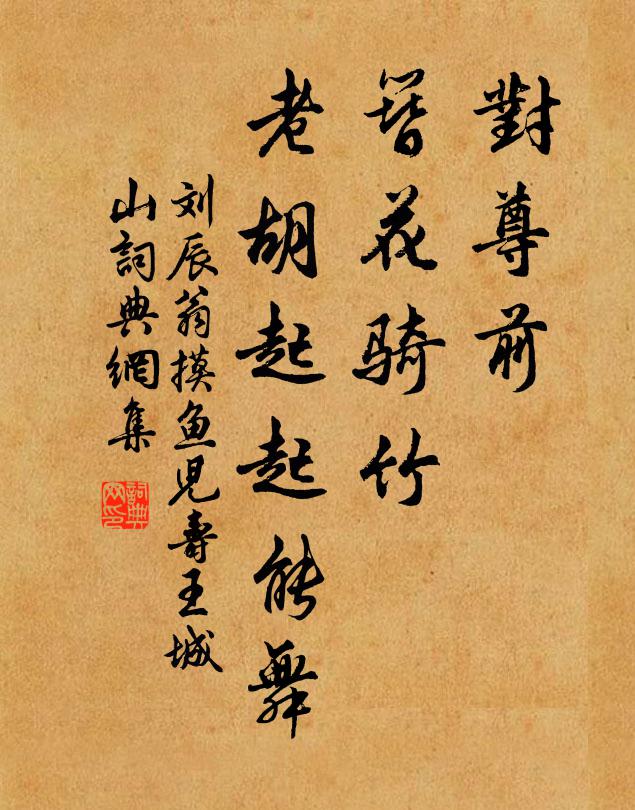 對尊前
簪花騎竹
老胡起起能舞
刘辰翁摸鱼児壽王城
山詞典網集
詞典
网印